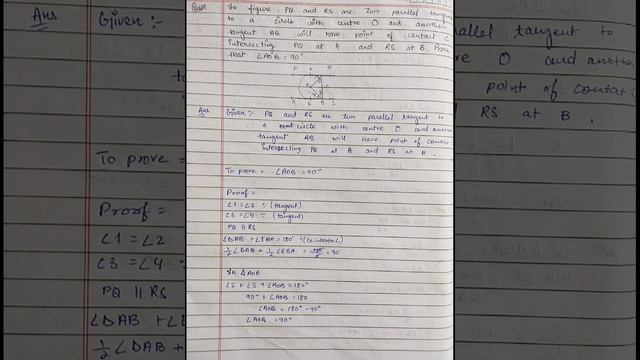 In figure, PQ and RS are two parallel tangent
to a circle with centre O and another
tangent AB will have point of contact C
intersecting PQ at A and RS at B. Prove
that ∠AOB = 90°
Ans Given:- PQ and RS are two parallel tangent to
a circle with centre O and another
tangent AB will have point of contact
intersecting PQ at A and RS at B.
To prove = ∠AOB = 90°
Proof =
∠1 = ∠2 ∵ (tangent)
∠3 = ∠4 ∵ (tangent)
PQ || RS
∠DAB + ∠EBA = 180° ∵ (Co. interior ∠)
1/2 ∠DAB + 1/2 ∠EBA = 180°/2 = 90°
In △AOB
∠2 + ∠3 + ∠AOB = 180°
90° + ∠AOB = 180
∠AOB = 180° - 90°
∠AOB = 90°
Ans Given:-
To prove =
Proof =
∠1 = ∠2
∠3 = ∠4 ∵
PQ || RS
∠DAB +
1/2 ∠DAB +
parallel tangent to
O and another
point of contact
RS at B.